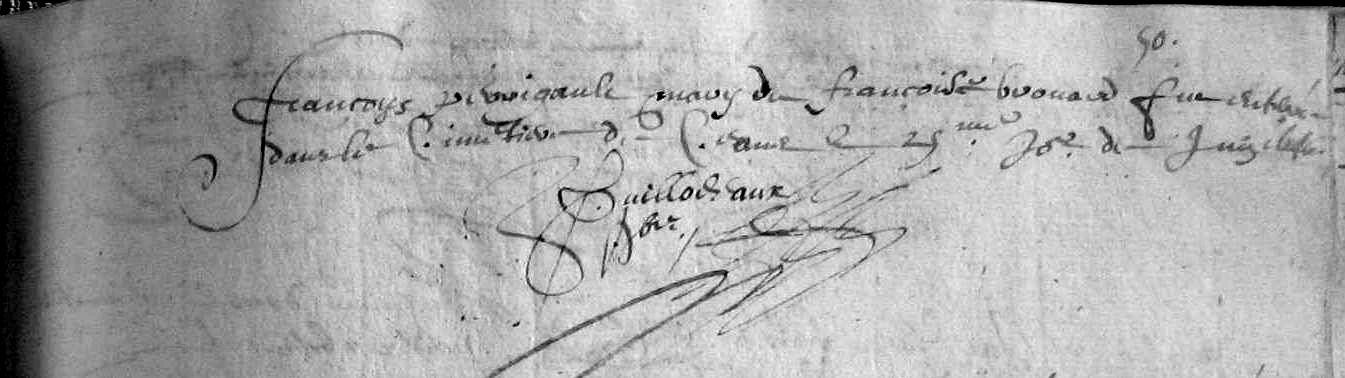 50.
françoys perrigault mary de françoise brouard fut enterré
dans le Cimetiere de Ceans le 25me Jor de Juin
Guillocheaux
pbr.